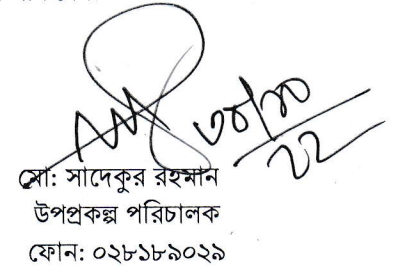 ৩০/১০
২২
মো: সাদেকুর রহমান
উপপ্রকল্প পরিচালক
ফোন: ০২৮১৮৯০২৯